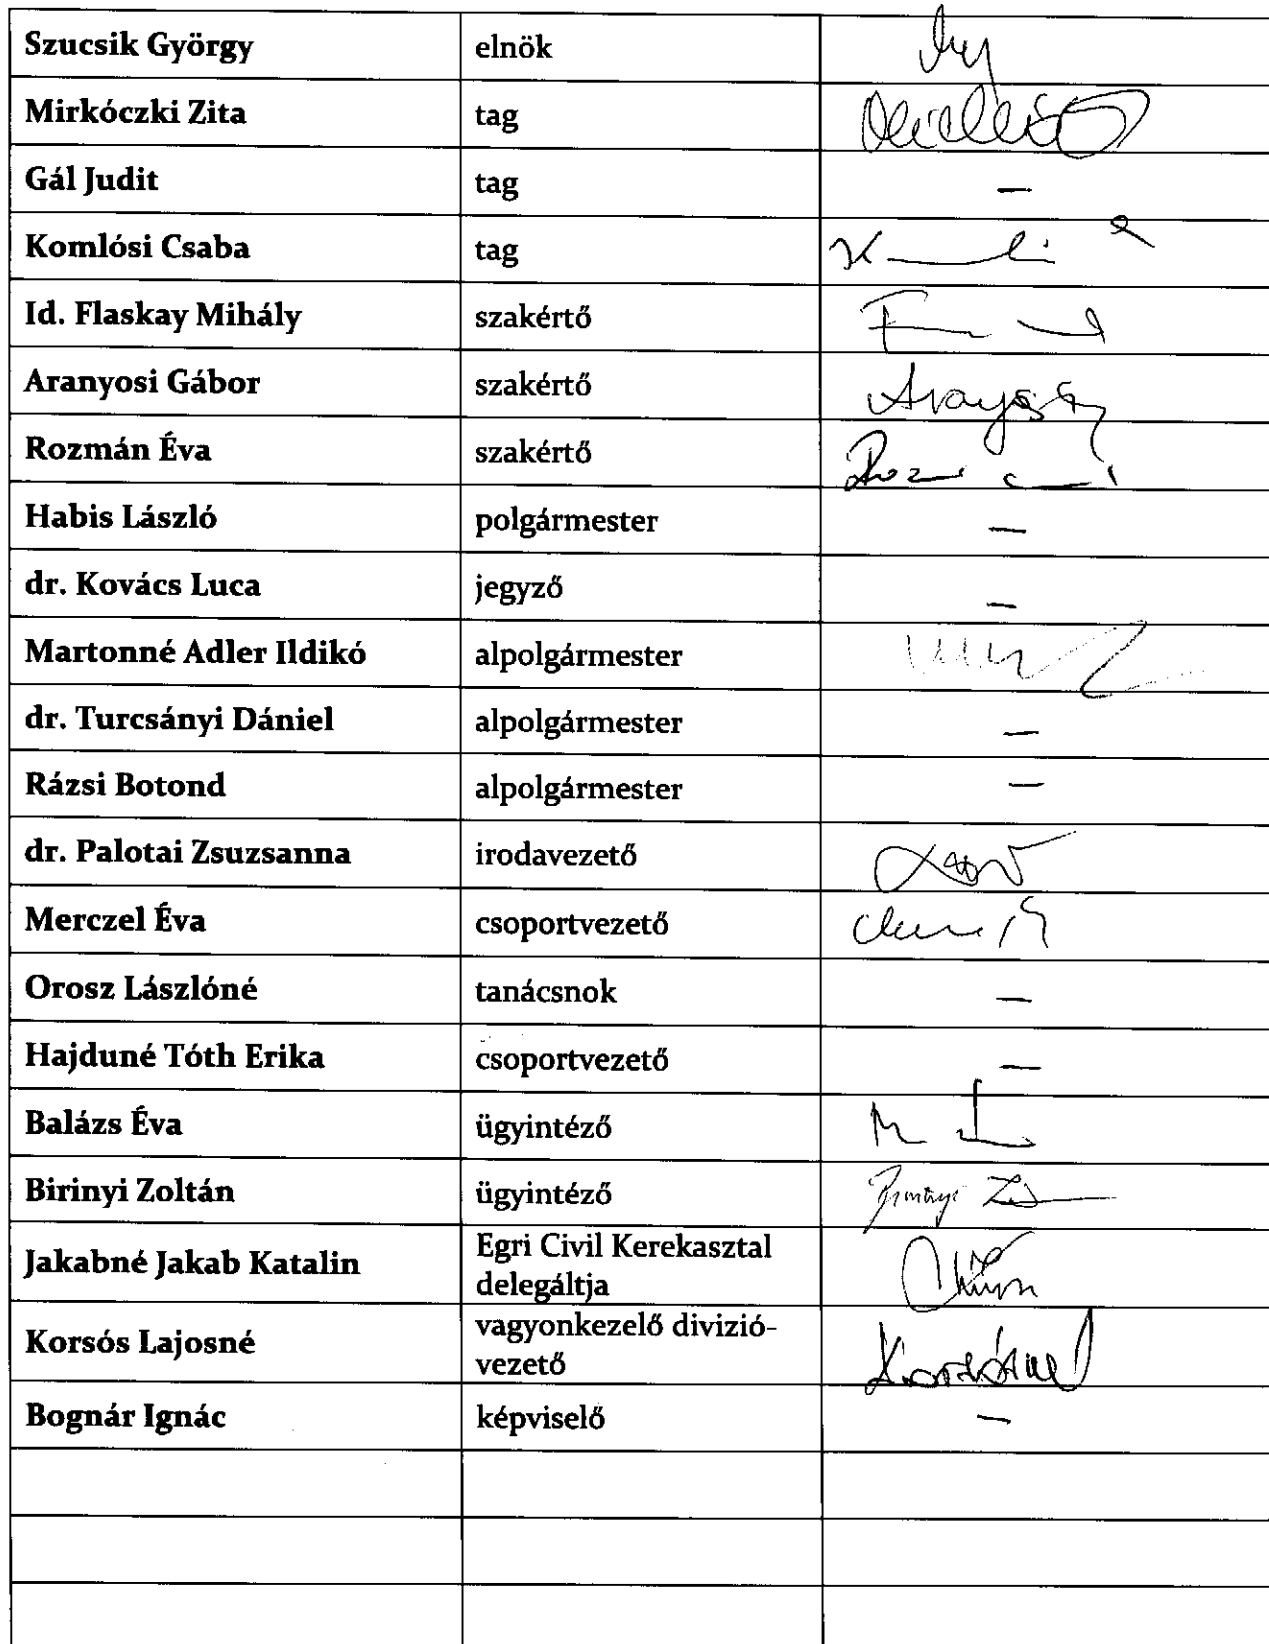 Szucsik György elnök
Mirkóczki Zita tag
Gál Judit tag –
Komlósi Csaba tag
Id. Flaskay Mihály szakértő
Aranyosi Gábor szakértő
Rozmán Éva szakértő
Habis László polgármester –
dr. Kovács Luca jegyző –
Martonné Adler Ildikó alpolgármester
dr. Turcsányi Dániel alpolgármester –
Rázsi Botond alpolgármester –
dr. Palotai Zsuzsanna irodavezető
Merczel Éva csoportvezető
Orosz Lászlóné tanácsnok –
Hajduné Tóth Erika csoportvezető –
Balázs Éva ügyintéző
Birinyi Zoltán ügyintéző
Jakabné Jakab Katalin Egri Civil Kerekasztal
delegáltja
Korsós Lajosné vagyonkezelő divizió-
vezető
Bognár Ignác képviselő –